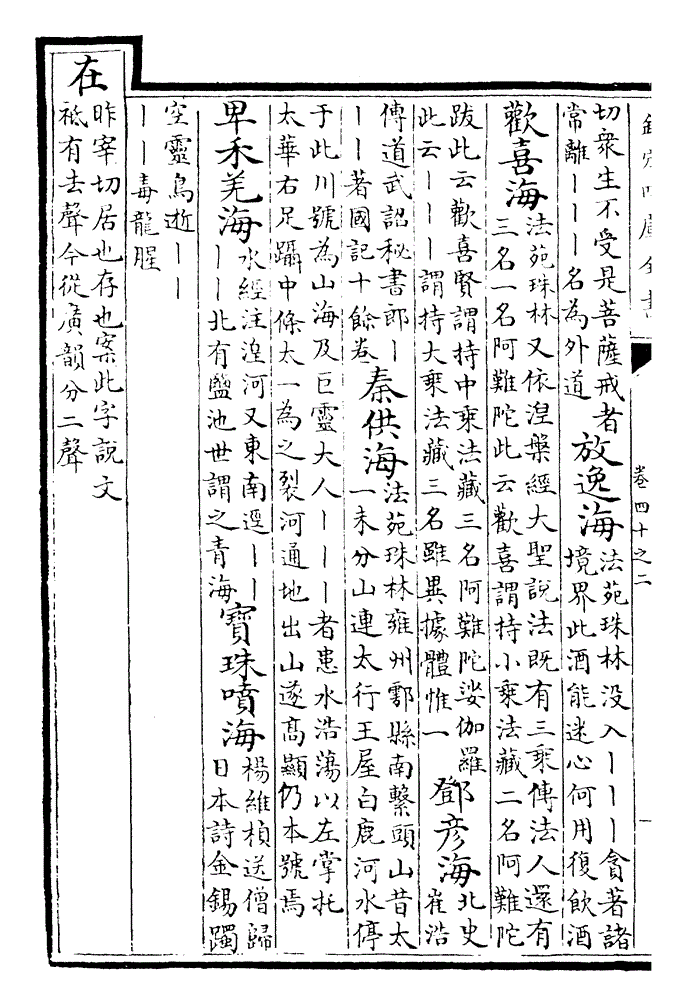 欽定四庫全書
卷四十之二
切衆生不受是菩薩戒者
常離｜｜｜名為外道
放逸海
法苑珠林没入｜｜｜貪著諸
境界此酒能迷心何用復飲酒
歡喜海
法苑珠林又依涅槃經大聖說法既有三乘傳法人還有
三名一名阿難陀此云歡喜謂持小乘法藏二名阿難陀
跋此云歡喜賢謂持中乘法藏三名阿難陀娑伽羅
此云｜｜｜謂持大乘法藏三名雖異據體惟一
鄧彦海
北史
崔浩
傳道武詔秘書郎｜
｜｜著國記十餘卷
秦供海
法苑珠林雍州鄠縣南繫頭山昔太
一未分山連太行王屋白鹿河水停
于此川號為山海及巨靈大人｜｜｜者患水浩蕩以左掌托
太華右足躡中條太一為之裂河通地出山遂高顯仍本號焉
卑禾羌海
水經注湟河又東南逕｜｜
｜｜北有鹽池世謂之青海
寶珠噴海
楊維楨送僧歸
日本詩金錫躅
空靈鳥逝｜｜
｜｜毒龍腥
在
昨宰切居也存也案此字說文
祗有去聲今從廣韻分二聲